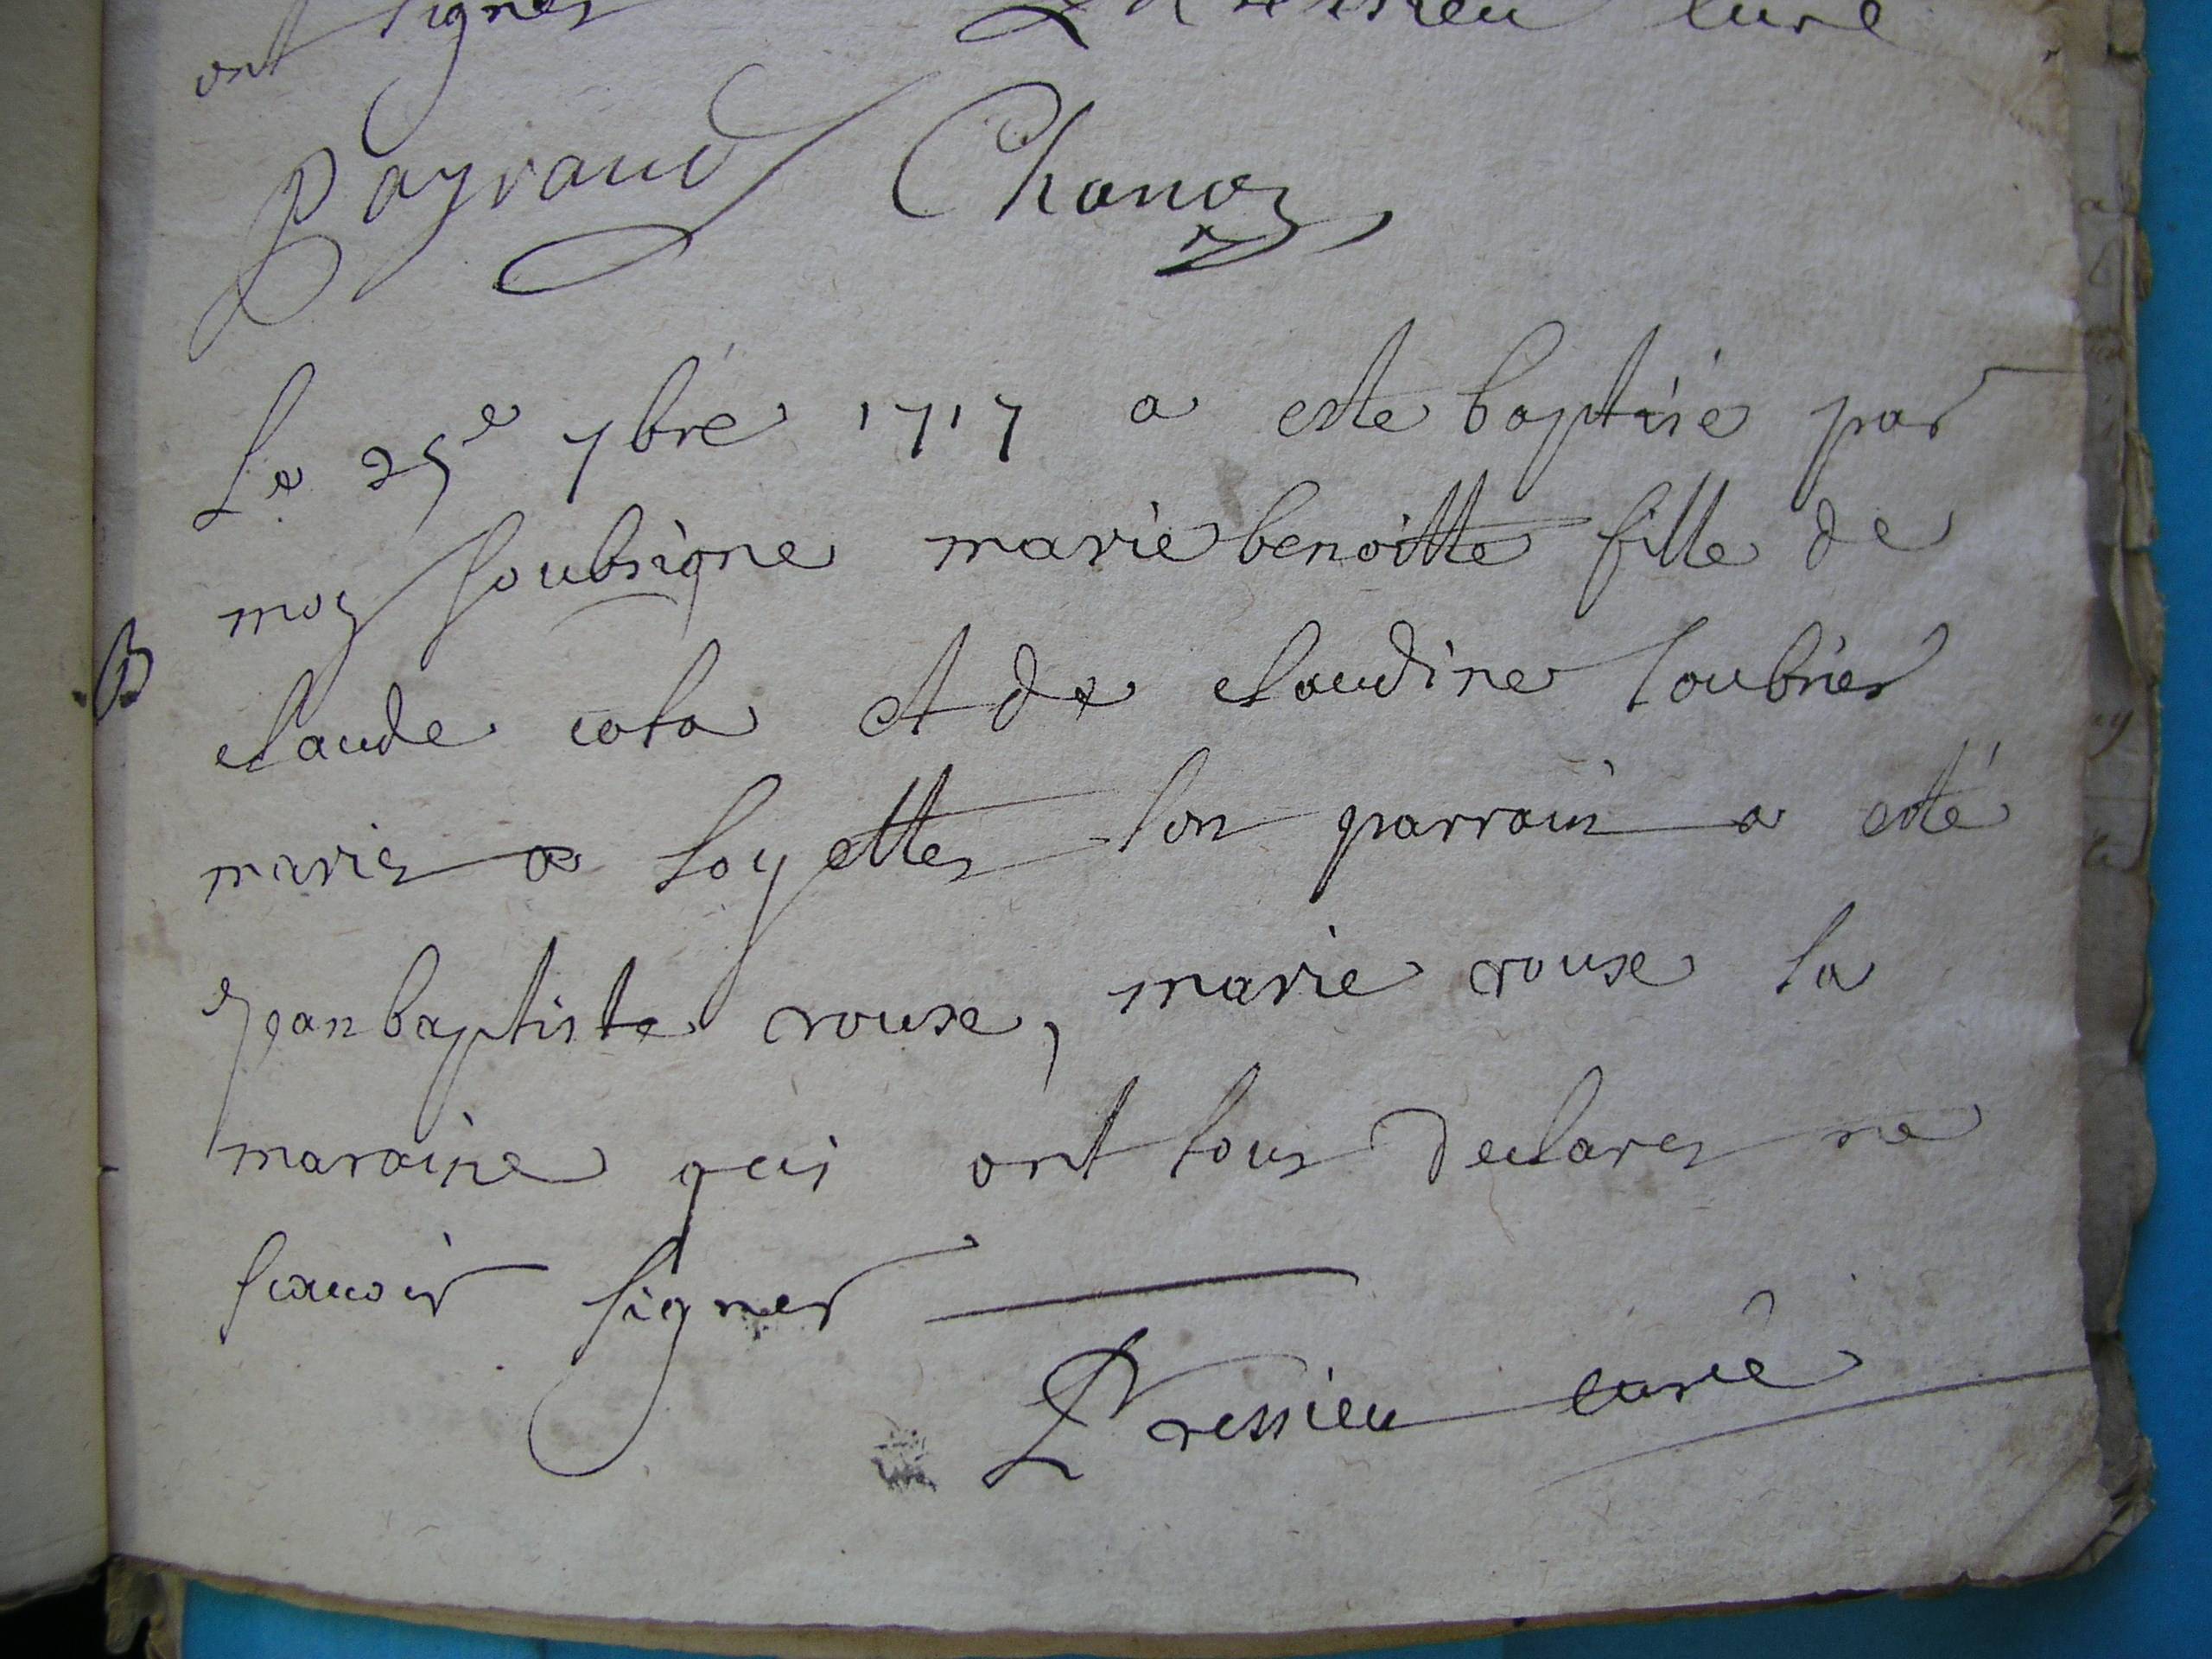 ont signer Dressieu curé
Payraud Chanoz
Le 25e 7bre 1717 a este baptisé par
moy soubsigne marie benoitte fille de
claude cota et de claudine loubrier
maries a loyettes son parrain a esté
Jean baptiste rouxe, marie rouxe la
maraine qui ont tous declares ne
scavoir signer
B
Dressieu curé